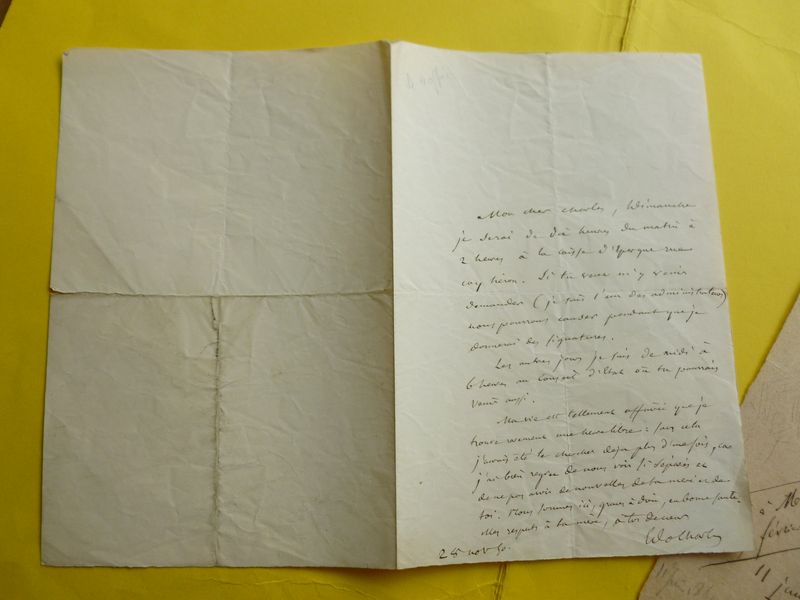 Mon cher Charles, Dimanche
je serai de dix heures du matin à
2 heures à la caisse d'Epargne rue
coq héron. Si tu veux m'y venir
demander (je suis l'un des administrateurs)
nous pourrons causer pendant que je
donnerai des signatures.
Les autres jours je suis de midi à
6 heures au Conseil d'Etat où tu pourrais
venir aussi.
Ma vie est tellement affairée que je
trouve rarement une heure libre : sans cela
j'aurais été te chercher déjà plus d'une fois, car
j'ai bien regret de nous voir si séparés et
de ne pas avoir de nouvelles de ta mère et de
toi. Nous sommes ici, grâces à Dieu, en bonne santé.
Mes respects à ta mère, à toi de coeur
28 nov 50.
à Me
février
11